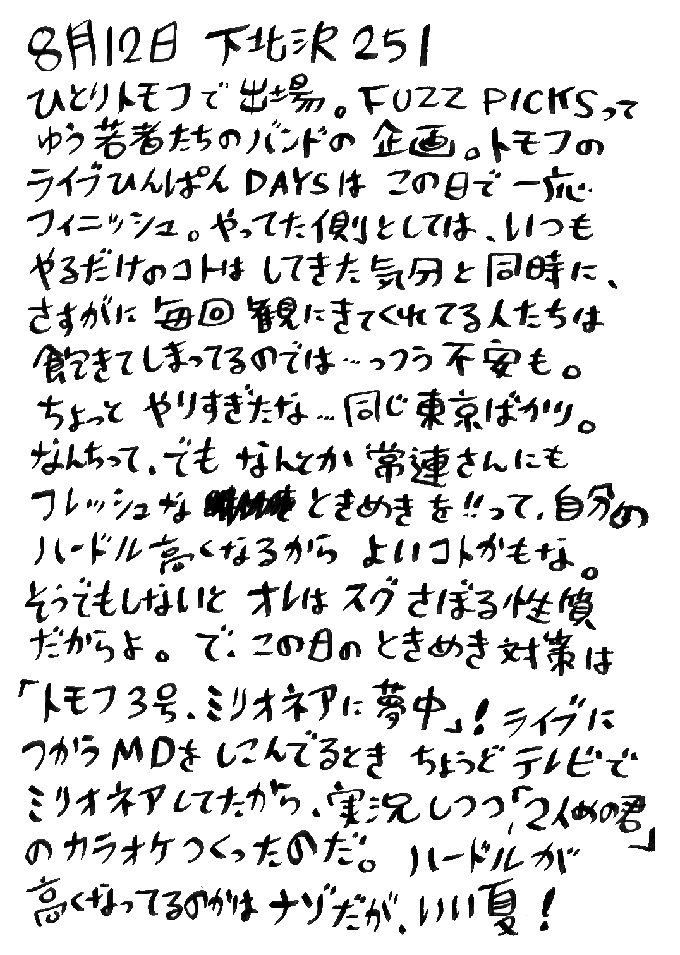 8月12日 下北沢251
ひとりトモフで出場。FUZZ PICKSって
ゆう若者たちのバンドの企画。トモフの
ライブひんぱんDAYSはこの日で一応
フィニッシュ。やってた側としては、いつも
やるだけのコトはしてきた気分と同時に、
さすがに毎回観にきてくれてる人たちは
飽きてしまってるのでは…っつう不安も。
ちょっとやりすぎたな…同じ東京ばかり。
なんちって、でもなんとか常連さんにも
フレッシュなときめきを!!って、自分の
ハードル高くなるからよいコトかもな。
そうでもしないとオレはスグさぼる性質
だからよ。で、この日のときめき対策は
「トモフ3号、ミリオネアに夢中」!ライブに
つかうMDをしこんでるときちょうどテレビで
ミリオネアしてたから、実況しつつ「2人めの君」
のカラオケつくったのだ。ハードルが
高くなってるのかはナゾだが、いい夏!